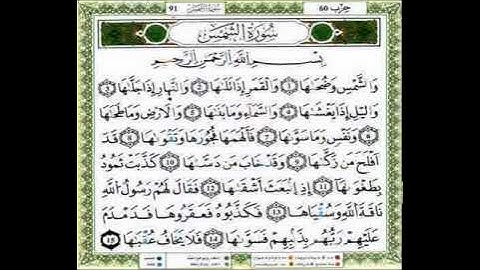 91 سورة الشمس حزب 60
سُورَةُ الشَّمْسِ
بِسْمِ اللَّهِ الرَّحْمَٰنِ الرَّحِيمِ
وَالشَّمْسِ وَضُحَاهَا ١ وَالْقَمَرِ إِذَا تَلَاهَا ٢ وَالنَّهَارِ إِذَا جَلَّاهَا ٣
وَاللَّيْلِ إِذَا يَغْشَاهَا ٤ وَالسَّمَاءِ وَمَا بَنَاهَا ٥ وَالْأَرْضِ وَمَا طَحَاهَا
٦ وَنَفْسٍ وَمَا سَوَّاهَا ٧ فَأَلْهَمَهَا فُجُورَهَا وَتَقْوَاهَا ٨ قَدْ
أَفْلَحَ مَن زَكَّاهَا ٩ وَقَدْ خَابَ مَن دَسَّاهَا 10 كَذَّبَتْ ثَمُودُ
بِطَغْوَاهَا 11 إِذِ انبَعَثَ أَشْقَاهَا 12 فَقَالَ لَهُمْ رَسُولُ اللَّهِ
نَاقَةَ اللَّهِ وَسُقْيَاهَا 13 فَكَذَّبُوهُ فَعَقَرُوهَا فَدَمْدَمَ
عَلَيْهِمْ رَبُّهُم بِذَنبِهِمْ فَسَوَّاهَا 14 فَلَا يَخَافُ عُقْبَاهَا 15